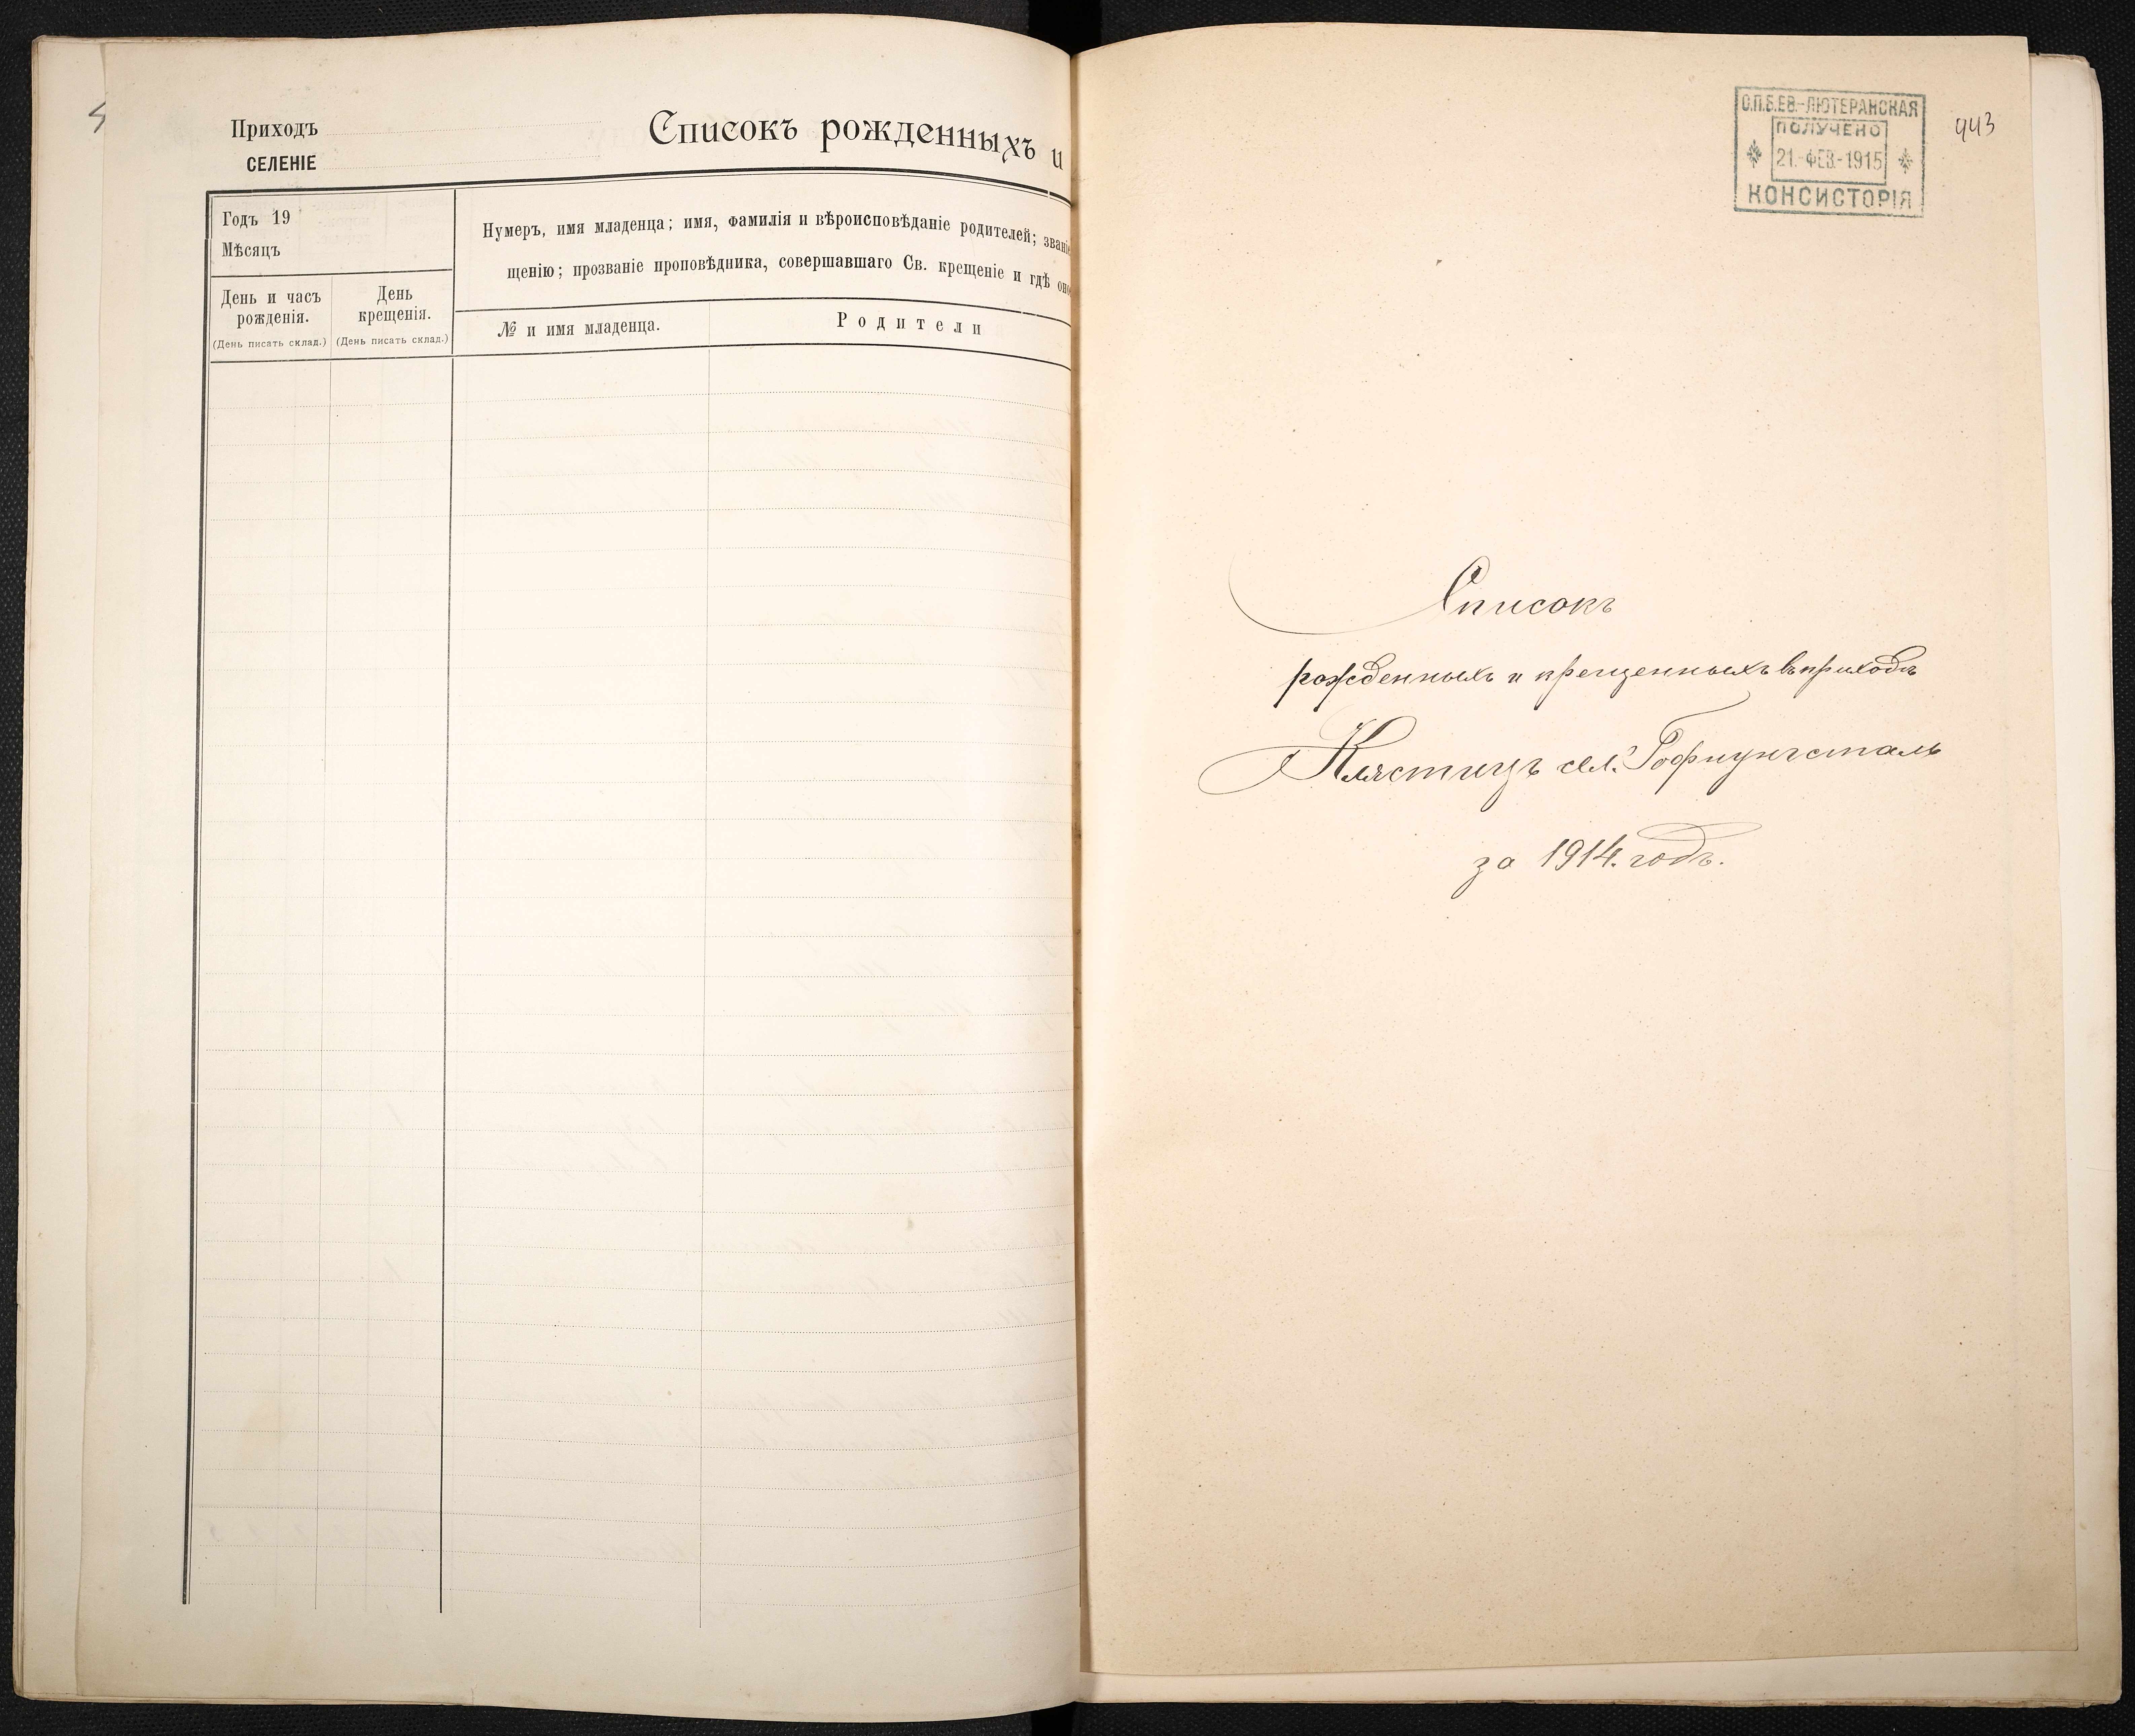 Приходъ
СЕЛЕНІЕ
Списокъ рожденныхъ и
Годъ 19
Мѣсяцъ
День и часъ рожденія.
(День писать склад.)
День крещенія.
(День писать склад.)
Нумеръ, имя младенца; имя, фамилія и вѣроисповѣданіе родителей; званіе
щенію; прозваніе проповѣдника, совершавшаго Св. крещеніе и гдѣ оно
№ и имя младенца.
Родители
С.П.Б.ЕВ.-ЛЮТЕРАНСКАЯ
ПОЛУЧЕНО
21.-ФЕВ.-1915
КОНСИСТОРІЯ
943
Списокъ
рожденныхъ и крещенныхъ въ приходѣ
Клястицъ сел. Гофнунгсталь
за 1914. годъ.